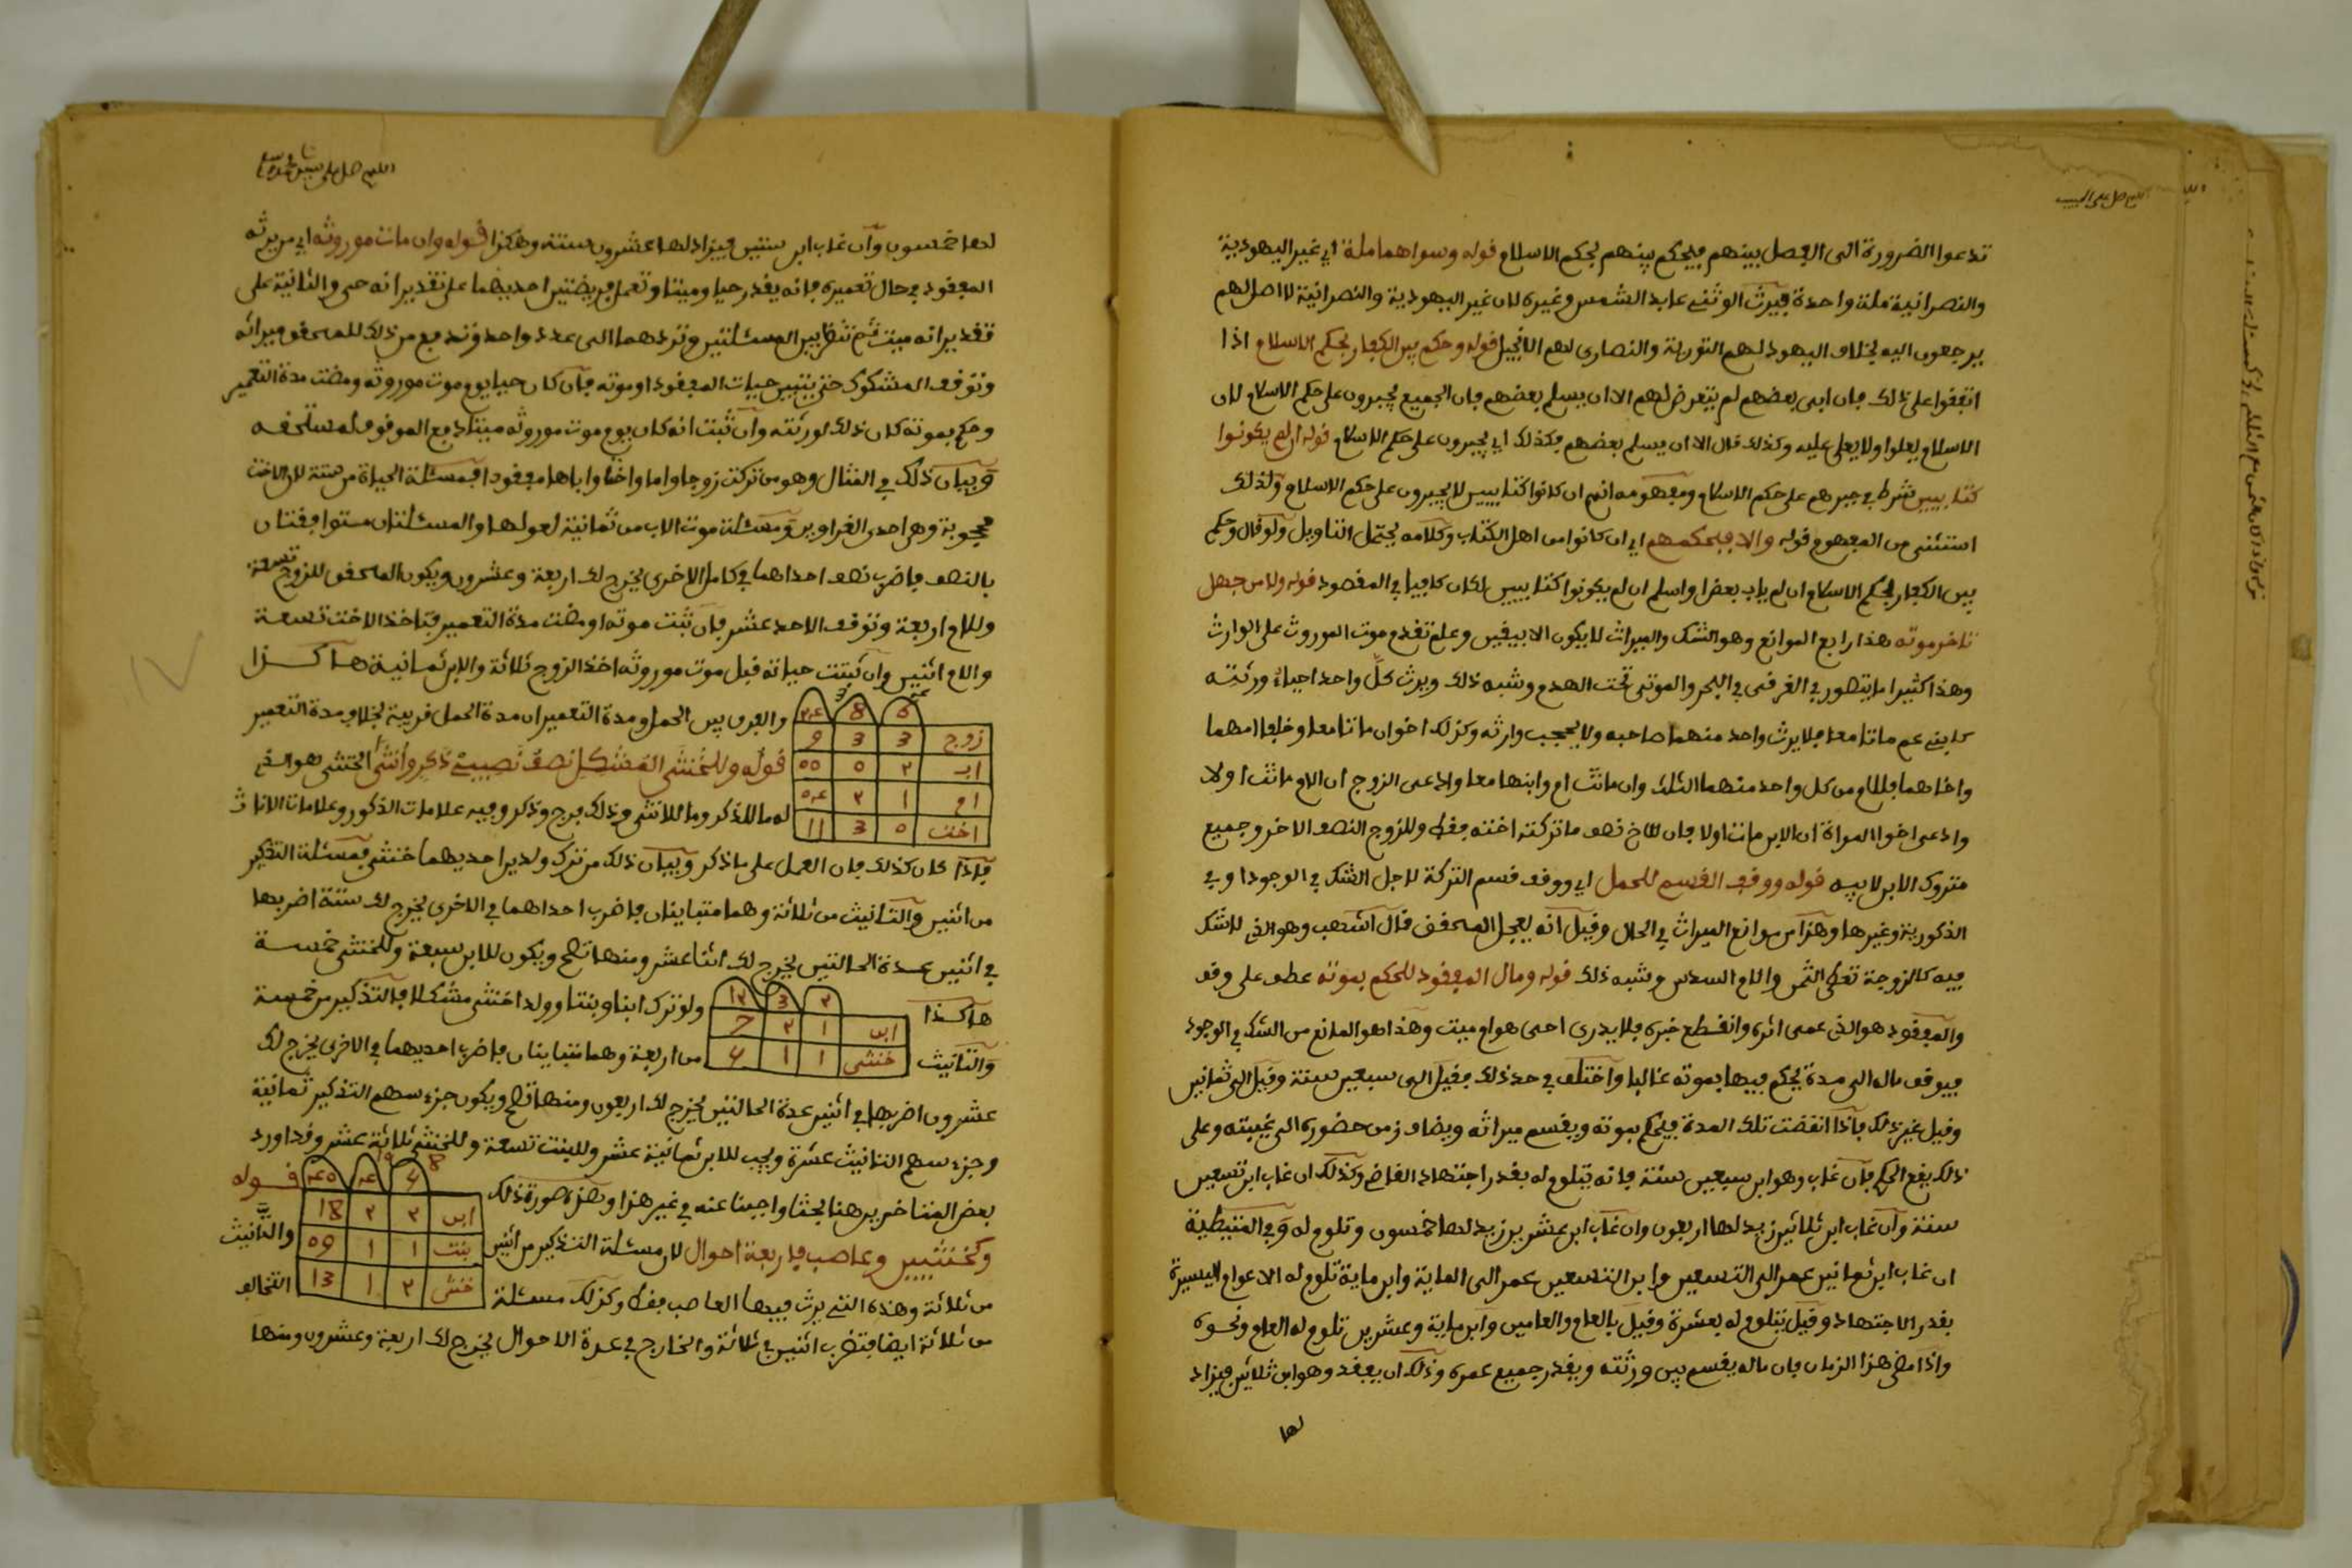 تدعوا الضرورة الى الفصل بينهم فيحكم بينهم بحكم الاسلام قوله وسواهما ملة اي غير اليهودية
والنصرانية ملة واحدة فيرث الوثني عابد الشمس وغيره لان غير اليهودية والنصرانية لا اصل لهم
يرجعون اليه بخلاف اليهود لهم التورية والنصارى لهم الانجيل قوله وحكم بين الكفار بحكم الاسلام اذا
اتفقوا على ذلك فان ابى بعضهم لم يتعرض لهم الا ان يسلم بعضهم فان الجميع يجبرون على حكم الاسلام لان
الاسلام يعلوا ولا يعلى عليه وكذلك قال الا ان يسلم بعضهم فكذلك اي يجبرون على حكم الاسلام قوله ان لم يكونوا
كتابيين شرط في جبرهم على حكم الاسلام ومفهومه انهم ان كانوا كتابيين لا يجبرون على حكم الاسلام ولذلك
استثنى من المفهوم قوله والا فبحكمهم اي ان كانوا من اهل الكتاب وكلامه يحتمل التاويل ولو قال وحكم
بين الكفار بحكم الاسلام ان لم ياب بعض او اسلم ان لم يكونوا كتابيين لكان كافيا في المقصود قوله ولا من جهل
تاخر موته هذا رابع الموانع وهو الشك والميراث لا يكون الا بيقين وعلم تقدم موت الموروث على الوارث
وهذا كثيرا ما يتصور في الغرقى في البحر والموتى تحت الهدم وشبه ذلك ويرث كل واحد احياء ورثته
كابني عم ماتا معا فلا يرث واحد منهما صاحبه ولا يحجب وارثه وكذلك اخوان ماتا معا وخلفا امهما
واخاهما فللام من كل واحد منهما الثلث وان ماتت ام وابنها معا وادعى الزوج ان الام ماتت اولا
وادعى اخوا المراة ان الابن مات اولا فان للاخ نصف ما تركته اخته فقط وللزوج النصف الاخر وجميع
متروك الابن لابيه قوله ووقف القسم للحمل اي ووقف قسم التركة لاجل الشك في الوجود او في
الذكورية وغيرها وهذا من موانع الميراث في الحال وقيل انه يعجل المحقق قال اشهب وهو الذي لا شك
فيه كالزوجة تعطى الثمن والام السدس وشبه ذلك قوله ومال المفقود للحكم بموته عطف على وقف
والمفقود هو الذي عمى اثره وانقطع خبره فلا يدرى احى هو او ميت وهذا هو المانع من الشك في الوجود
فيوقف ماله الى مدة يحكم فيها بموته غالبا واختلف في حد ذلك فقيل الى سبعين سنة وقيل الى ثمانين
وقيل غير ذلك فاذا انقضت تلك المدة فيحكم بموته ويقسم ميراثه ويضاف زمن حضوره الى غيبته وعلى
ذلك يقع الحكم فان غاب وهو ابن سبعين سنة فانه يتلوم له بقدر اجتهاد القاضي وكذلك ان غاب ابن تسعين
سنة وان غاب ابن ثلاثين زيد لها اربعون وان غاب ابن عشرين زيد لها خمسون وتلوم له وفي المتيطية
ان غاب ابن ثمانين عمر الى التسعين وابن التسعين عمر الى الماية وابن ماية تلوم له الاعوام اليسيرة
بقدر الاجتهاد وقيل يتلوم له بعشرة وقيل بالعام والعامين وابن ماية وعشرين تلوم له العام ونحوه
واذا مضى هذا الزمان فان ماله يقسم بين ورثته وبقدر جميع عمره وذلك ان يفقد وهو ابن ثلاثين فيزاد
لها
لها خمسون وان غاب ابن سنتين فيزاد لها عشرون سنة وهكذا قوله وان مات موروثه اي من يرثه
المفقود في حال تعميره فانه يقدر حيا وميتا وتعمل فريضتين احديهما على تقدير انه حي والثانية على
تقدير انه ميت ثم تنظر بين المسئلتين وتردهما الى عدد واحد وتدفع من ذلك للمحقق ميراثه
وتوقف المشكوك حتى يتبين حيات المفقود او موته فان كان حيا يوم موت موروثه ومضت مدة التعمير
وحكم بموته كان ذلك لورثته وان ثبت انه كان يوم موت موروثه ميتا دفع الموقوف لمستحقه
وبيان ذلك في المثال وهو من تركت زوجا واما واختا وابا مفقودا فمسئلة الحياة من ستة لان الاخت
محجوبة وهي احدى الغراوين ومسئلة موت الاب من ثمانية لعولها والمسئلتان متوافقتان
بالنصف فاضرب نصف احداهما في كامل الاخرى يخرج لك اربعة وعشرون ويكون المحقق للزوج تسعة
وللام اربعة وتوقف الاحد عشر فان ثبت موته او مضت مدة التعمير فتاخذ الاخت تسعة
والام اثنين وان ثبتت حياته قبل موت موروثه اخذ الزوج ثلاثة والاب ثمانية هاكذا
والفرق بين الحمل ومدة التعمير ان مدة الحمل قريبة بخلاف مدة التعمير
6 8 24
زوج 3 3 9
اب 2 0 00
ام 1 2 04
اخت 0 3 11
قوله وللخنثى المشكل نصف نصيبي ذكر وانثى الخنثى هو الذي
له ما للذكر وما للانثى وذلك فرج وذكر وفيه علامات الذكور وعلامات الاناث
فاذا كان كذلك فان العمل على ما ذكر وبيان ذلك من ترك ولدين احديهما خنثى فمسئلة التذكير
من اثنين والتانيث من ثلاثة وهما متباينان فاضرب احداهما في الاخرى يخرج لك ستة اضربها
في اثنين عدة الحالتين يخرج لك اثنا عشر ومنها تصح ويكون للابن سبعة وللخنثى خمسة
هاكذا
2 3 12
ابن 1 2
خنثى 1 1
ولو ترك ابنا وبنتا وولدا خنثى مشكلا فالتذكير من خمسة
والتانيث من اربعة وهما متباينان فاضرب احديهما في الاخرى يخرج لك
عشرون اضربها في اثنين عدة الحالتين يخرج لك اربعون ومنها تصح ويكون جزء سهم التذكير ثمانية
وجزء سهم التانيث عشرة ويجب للابن ثمانية عشر وللبنت تسعة وللخنثى ثلاثة عشر وقد اورد
بعض المتاخرين هنا بحثا واجبنا عنه في غير هذا وهذه صورة ذلك
ابن 2 2 18
بنت 1 1 09
خنثى 2 1 13
قوله
وكخنثيين وعاصب فاربعة احوال لان مسئلة التذكير من اثنين والتانيث
من ثلاثة وهذه التي يرث فيها العاصب فقط وكذلك مسئلة التخالف
من ثلاثة ايضا فتضرب اثنين في ثلاثة والخارج في عدة الاحوال يخرج لك اربعة وعشرون ومنها